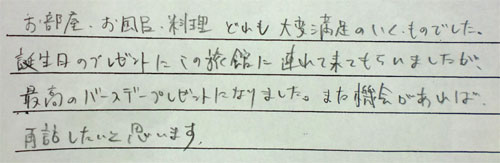 お部屋、お風呂、料理 どれも 大変満足のいくものでした。
誕生日のプレゼントに この旅館に 連れて来てもらいましたが、
最高のバースデープレゼントになりました。また機会があれば、
再訪したいと思います。